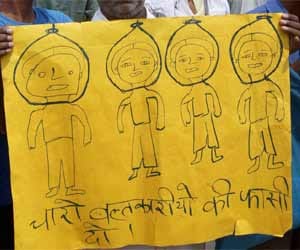 चारो बलत्कारीयो की फासी
दो ।